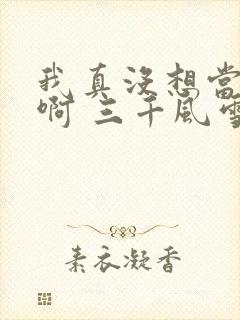 我真没想当
啊 三千风雪
素衣凝香